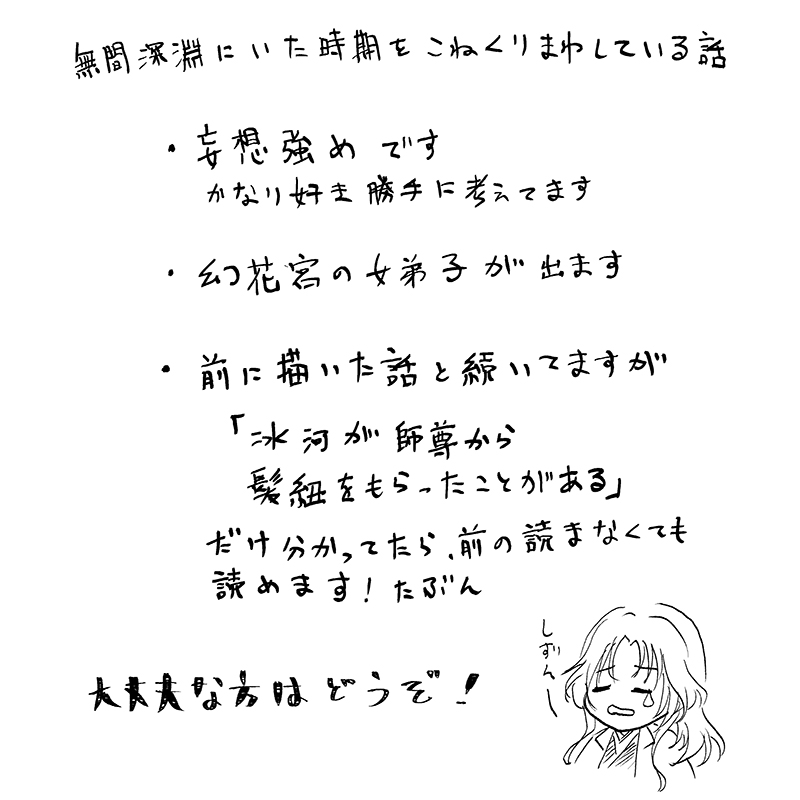 無間深淵にいた時期をこねくりまわしている話
・妄想強めです
かなり好き勝手に考えてます
・幻花宮の女弟子が出ます
・前に描いた話と続いてますが
「冰河が師尊から
髪紐をもらったことがある」
だけ分かってたら、前の読まなくても
読めます！たぶん
大丈夫な方はどうぞ！
しずんー